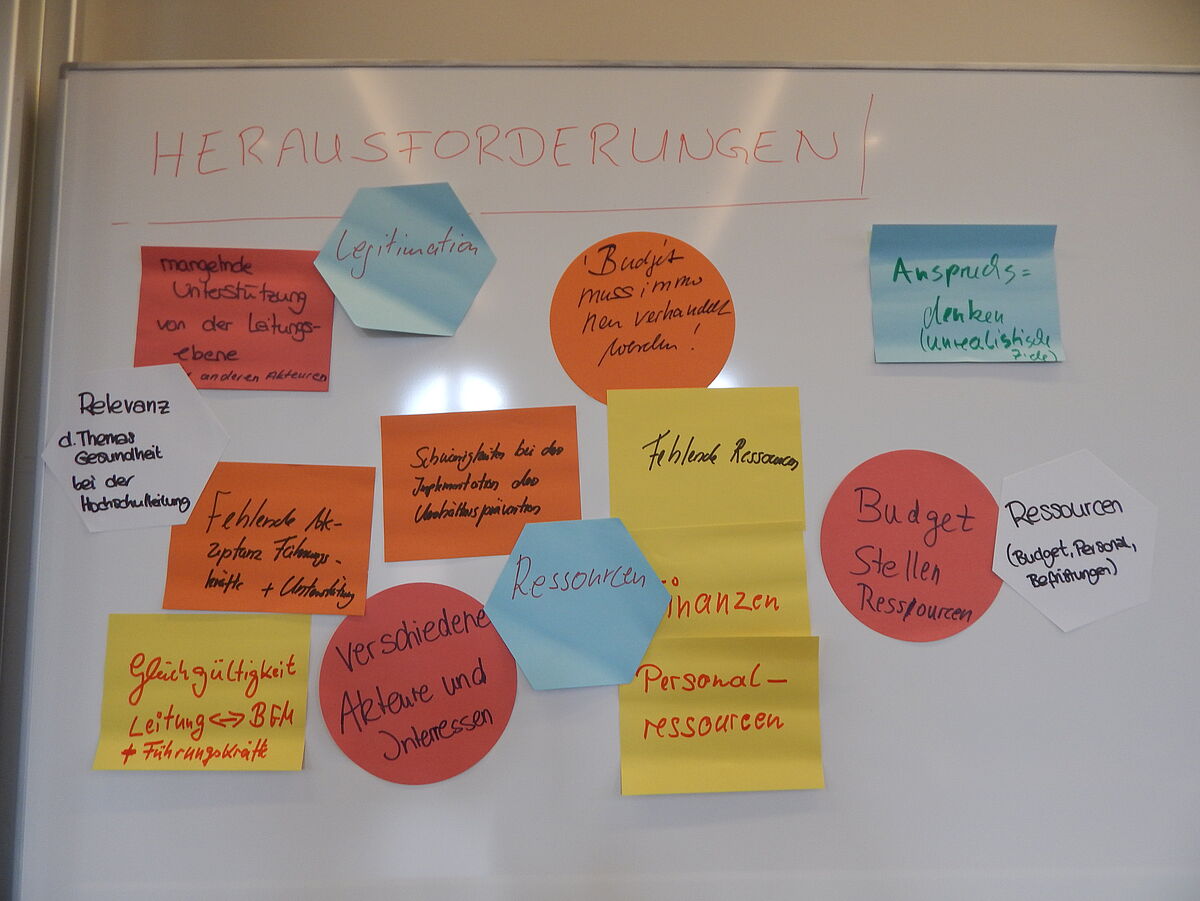 HERAUSFORDERUNGEN
mangelnde
Unterstützung
von der Leitungs-
ebene
anderen Akteuren
Legitimation
Budget
muss immer
neu verhandelt
werden!
Anspruchs=
denken
(unrealistische
Ziele)
Relevanz
d. Themas
Gesundheit
bei der
Hochschulleitung
Fehlende Ak-
zeptanz Führungs-
kräfte + Unterstützung
Schwierigkeiten bei der
Implementation der
Verhältnisprävention
Fehlende Ressourcen
Ressourcen
inanzen
Personal-
ressourcen
Budget
Stellen
Ressourcen
Ressourcen
(Budget, Personal,
Befristungen)
Gleichgültigkeit
Leitung <=> BGM
+ Führungskräfte
Verschiedene
Akteure und
Interressen